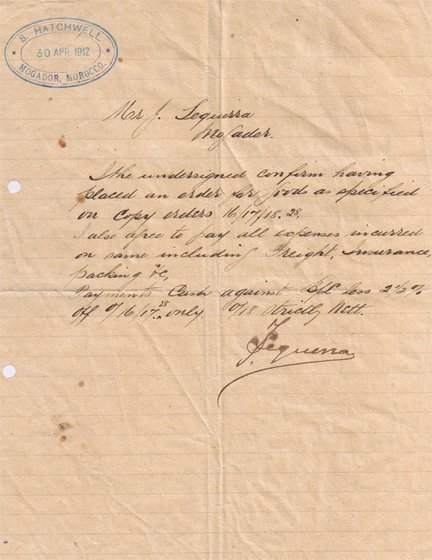 S. HATCHWELL
30 APR. 1912
MOGADOR, MOROCCO.
Mr J. Sequerra
Mogador.
I the undersigned confirm having
placed an order for goods as specified
on copy orders 16/17/18. 28,
I also agree to pay all expenses incurred
on same including Freight, Insurance,
packing &c,
Payments Cash against B/L less 2½%
off 16/17. 28 only 18 Strictly Nett.
J. Sequerra